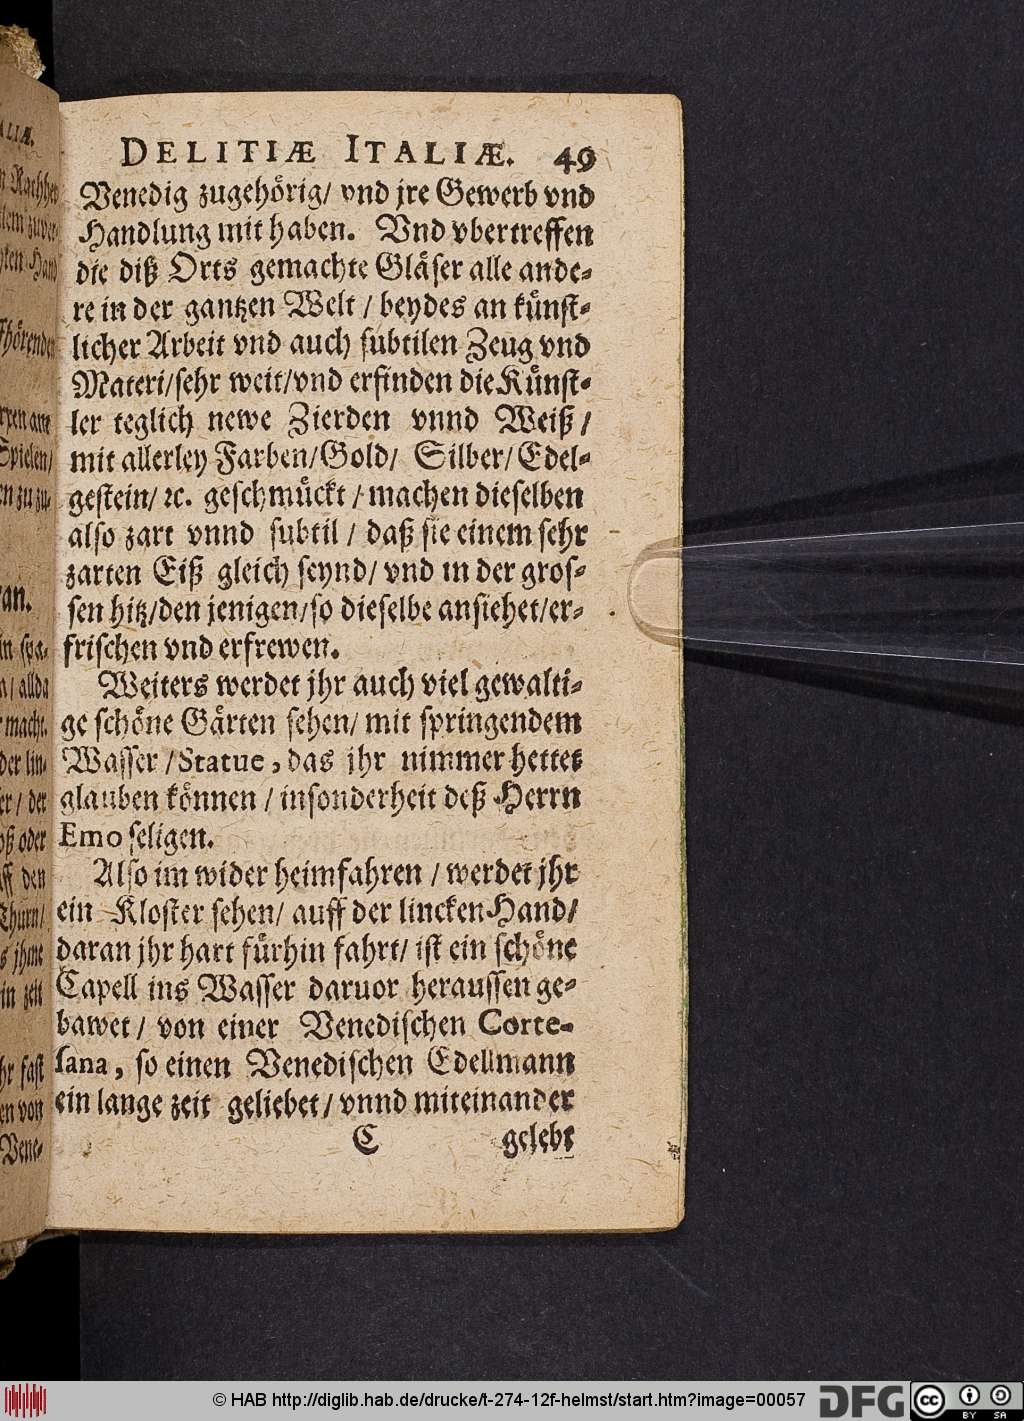 DELITIÆ ITALIÆ. 49
Venedig zugehörig/ vnd jre Gewerb vnd
Handlung mit haben. Vnd vbertreffen
die diß Orts gemachte Gläser alle ande-
re in der gantzen Welt / beydes an künst-
licher Arbeit vnd auch subtilen Zeug vnd
Materi/sehr weit/vnd erfinden die Künst-
ler teglich newe Zierden vnnd Weiß /
mit allerley Farben/Gold/ Silber/ Edel-
gestein/ ꝛc. geschmückt / machen dieselben
also zart vnnd subtil / daß sie einem sehr
zarten Eiß gleich seynd/ vnd in der gros-
sen hitz/den jenigen/so dieselbe ansiehet/er-
frischen vnd erfrewen.
Weiters werdet jhr auch viel gewalti-
ge schöne Gärten sehen/ mit springendem
Wasser /Statue, das jhr nimmer hettet
glauben können / insonderheit deß Herrn
Emo seligen.
Also im wider heimfahren / werdet jhr
ein Kloster sehen/ auff der lincken Hand/
daran jhr hart fürhin fahrt/ ist ein schöne
Capell ins Wasser daruor heraussen ge-
bawet / von einer Venedischen Corte-
sana, so einen Venedischen Edellmann
ein lange zeit geliebet / vnnd miteinander
C gelebt
© HAB http://diglib.hab.de/drucke/t-274-12f-helmst/start.htm?image=00057 DFG cc BY SA